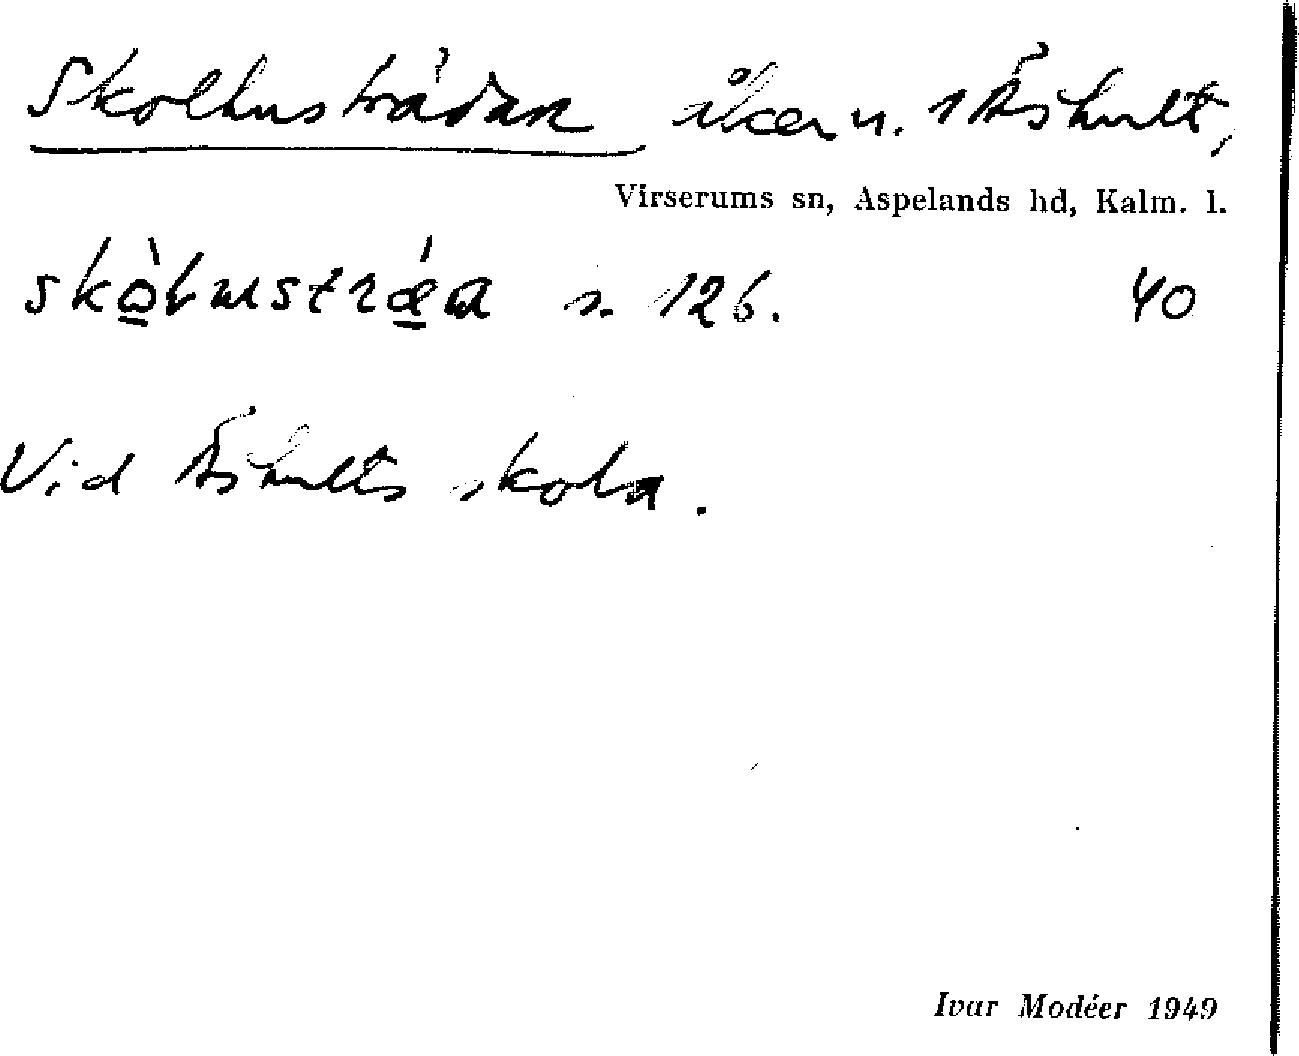 Skolhusträdan åker n. i Åshult,
Virserums sn, Aspelands hd, Kalm. l.
skòlustræ̀a s. 126. 40
Vid Åshults skola.
Ivar Modéer 1949